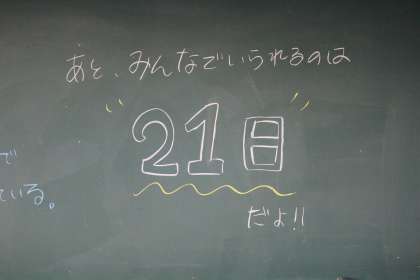 あと、みんなでいられるのは
21日
だよ!!
で
ている。